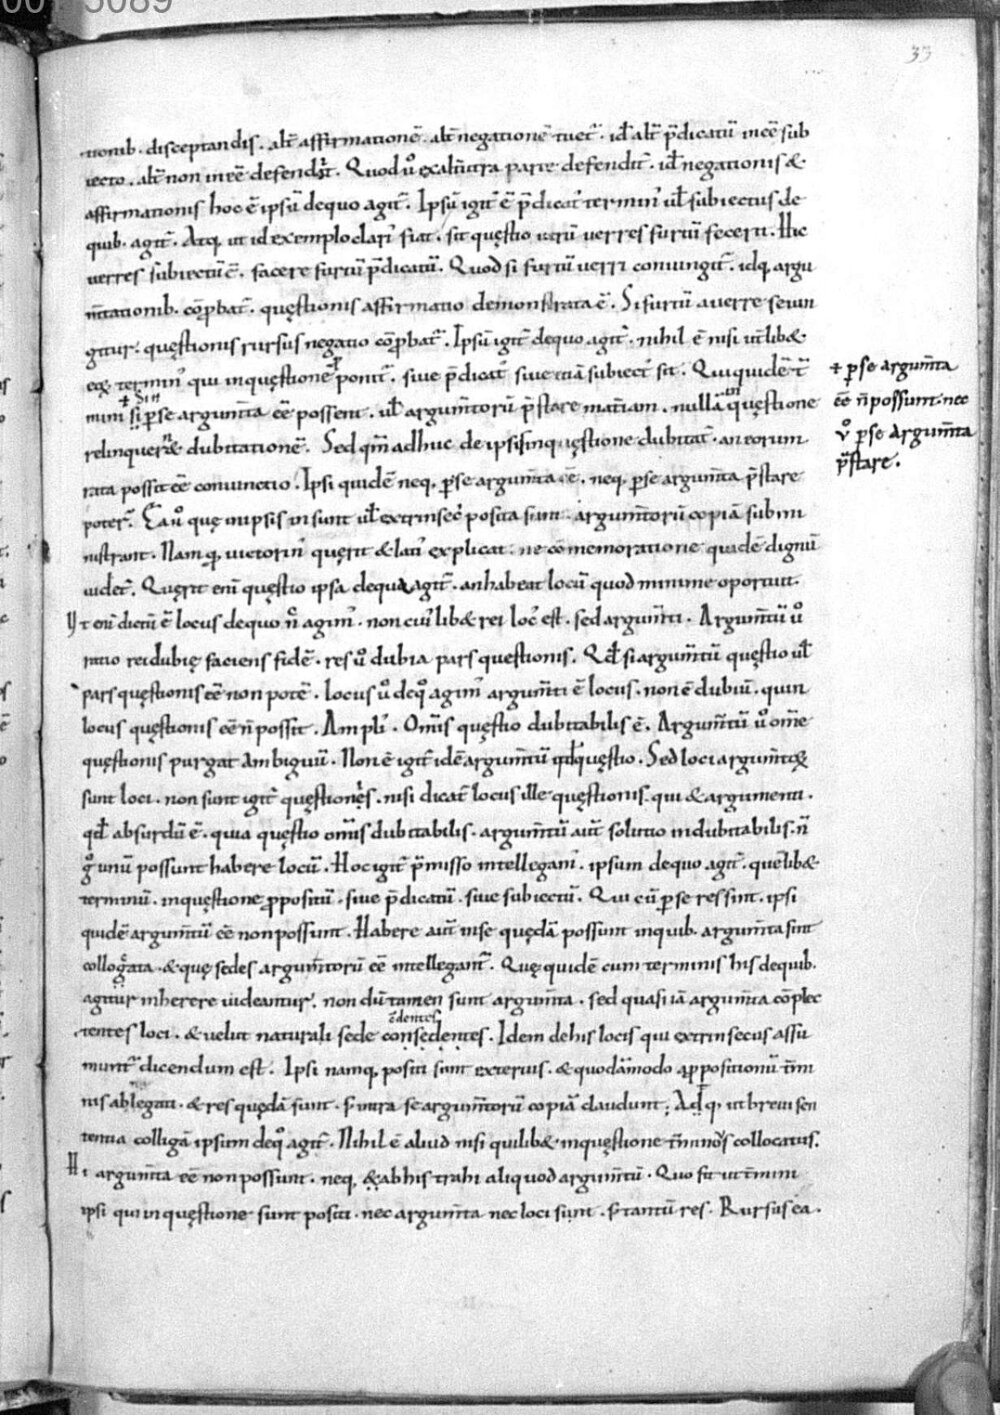 33
tionib. disceptandis. alt̄ affirmationē. alt̄ negationē tuet̄. id ē alt̄ p̄dicatū inee sub
iecto. alt̄ non inēē defendit. Quod ů ex alt̄utra parte defendit̄. id ē negationis &
affirmationis hoc ē ipsū dequo agit̄. Ipsū igit̄ ē p̄dicat' termin' ul subiectus de
quib. agit̄. Atq. ut id exemplo clari' fiat. sit questio utrū uerres furtū fecerit. Hic
uerres subiectū ē. facere furtū p̄dicatū. Quod si furtū uerri coniungit̄. idq. argu
m̄tationib. cōprobat̄. questionis affirmatio demonstrata ē. Si furtū a uerre seiun
gitur. questionis rursus negatio cōprobat̄. Ipsū igit̄ dequo agit̄. nihil ē nisi utlib&
eoꝝ termin' qui in questionē ponit̄. siue p̄dicat' siue etiā subiect' sit. Qui quidē t̄
+ p se argum̄ta
mini si p se argum̄ta ēē possent. ul argum̄torū p̄stare mat̄iam. nullā in questione
ēē n̄ possunt. nec
relinquer& dubitationē. Sed qm̄ adhuc de ipsis in questione dubitat̄. an eorum
ů p se argum̄ta
rata possit ēē coniunctio. Ipsi quidē neq. p se argum̄ta ēē. neq. p se argum̄ta p̄stare
p̄stare.
poter̄. Ea ů que in ipsis insunt ul extrinsec' posita sunt. argum̄torū copiā submi
nistrant. Nam q. uictorin' querit & lati' explicat. ne cōmemoratione quidē dignū
uidet̄. Querit eni questio ipsa dequa agit̄. an habeat locū quod minime oportuit.
Ut eni dictū ē locus dequo n̊ agim'. non cui'lib& rei loc' est. sed argum̄ti. Argum̄tū ů
ratio rei dubie faciens fidē. res ů dubia pars questionis. Qd si argum̄tū questio ul
pars questionis ēē non potē. locus ů deq̊ agim' argum̄ti ē locus. non ē dubiū. quin
locus questionis ēē n̄ possit. Ampli'. Om̄is questio dubitabilis ē. Argum̄tū ů om̄e
questionis purgat ambiguū. Non ē igit̄ idē argum̄tū qd questio. Sed loci argum̄toꝝ
sunt loci. non sunt igit̄ questiones. nisi dicat̄ locus ille questionis. qui & argumenti.
qd absurdū ē. quia questio om̄is dubitabilis. argum̄tū aut̄ solutio indubitabilis. n̄
g̊ unū possunt habere locū. Hoc igit̄ p̄misso intellegam'. ipsum dequo agit̄. quēlib&
terminū. in questione p̄positū. siue p̄dicatū. siue subiectū. Qui cū p se res sint. ipsi
quidē argum̄tū ēē non possunt. Habere aut̄ in se quedā possunt in quib. argum̄ta sint
collocata. & que sedes argum̄torū ēē intellegant̄. Que quidē cum terminis his dequib.
agitur inherere uideantur. non dū tamen sunt argum̄ta. sed quasi iā argum̄ta cōplec
tentes loci. & uelut naturali sede consedentes. Idem de his locis qui extrinsecus assu
munt̄ dicendum est. Ipsi namq. positi sunt exterius. & quodāmodo a p̄positionū t̄mi
nis ablegati. & res quedā sunt. & intra se argum̄torū copiā claudunt. Adq. ut breui sen
tentia colligā ipsum deq̊ agit̄. Nihil ē aliud nisi quilib& in questione t̄minos collocatus.
Hi argum̄ta ēē non possunt. neq. & ab his trahi aliquod argum̄tū. Quo fit ut t̄mini
ipsi qui in questione sunt positi. nec argum̄ta nec loci sunt. & tantū res. Rursus ea.